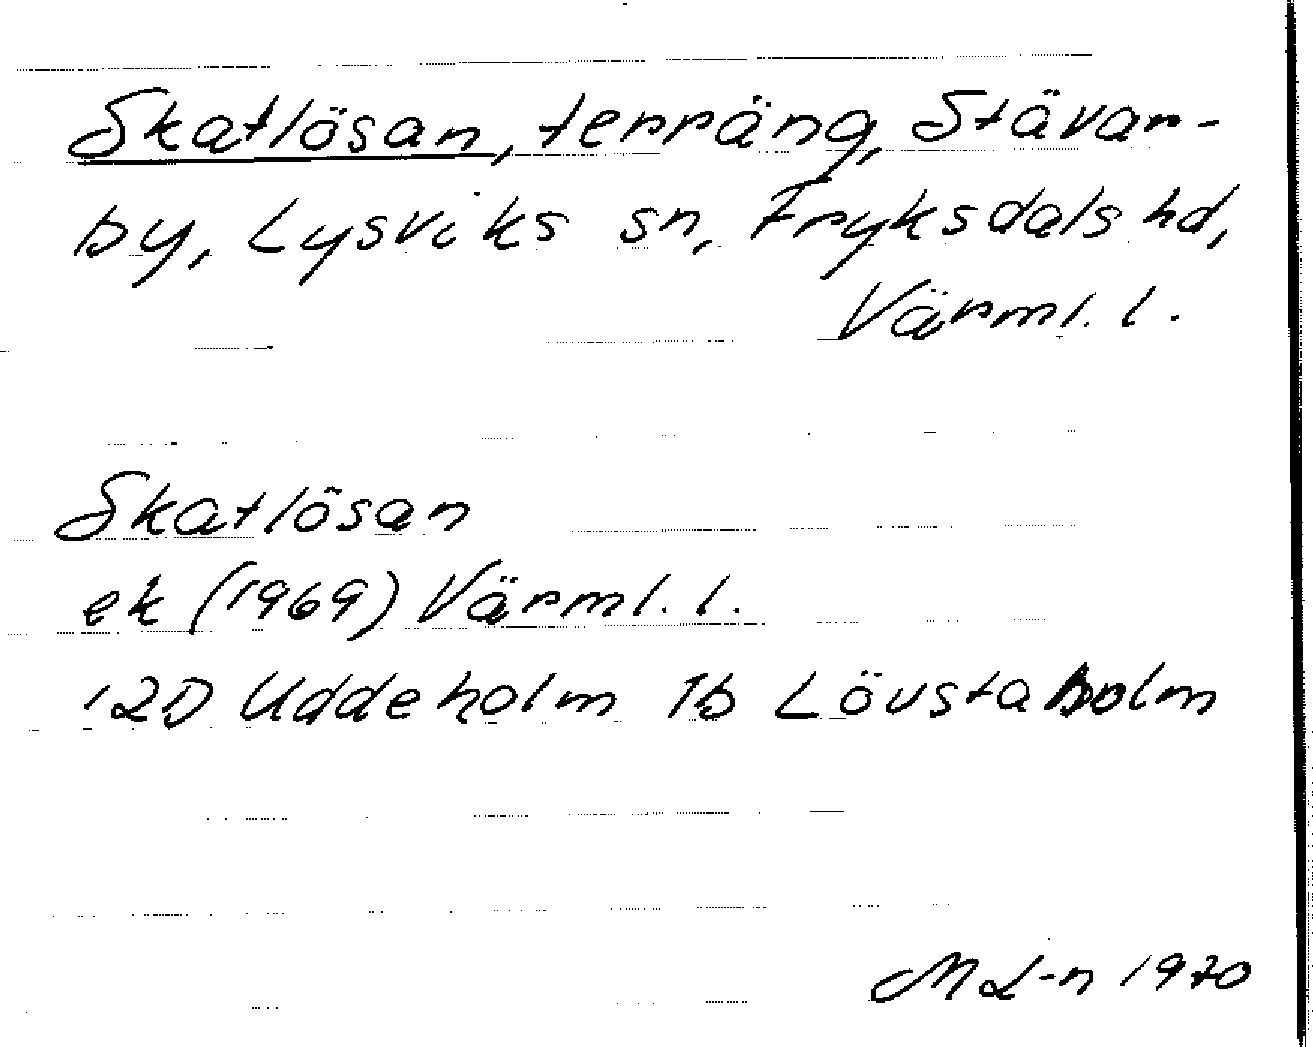 Skatlösan, terräng, Stävar-
by, Lysviks sn, Fryksdals hd,
Värml. l.
Skatlösan
ek (1969) Värml. l.
12D Uddeholm 1b Lövstaholm
M L-n 1970